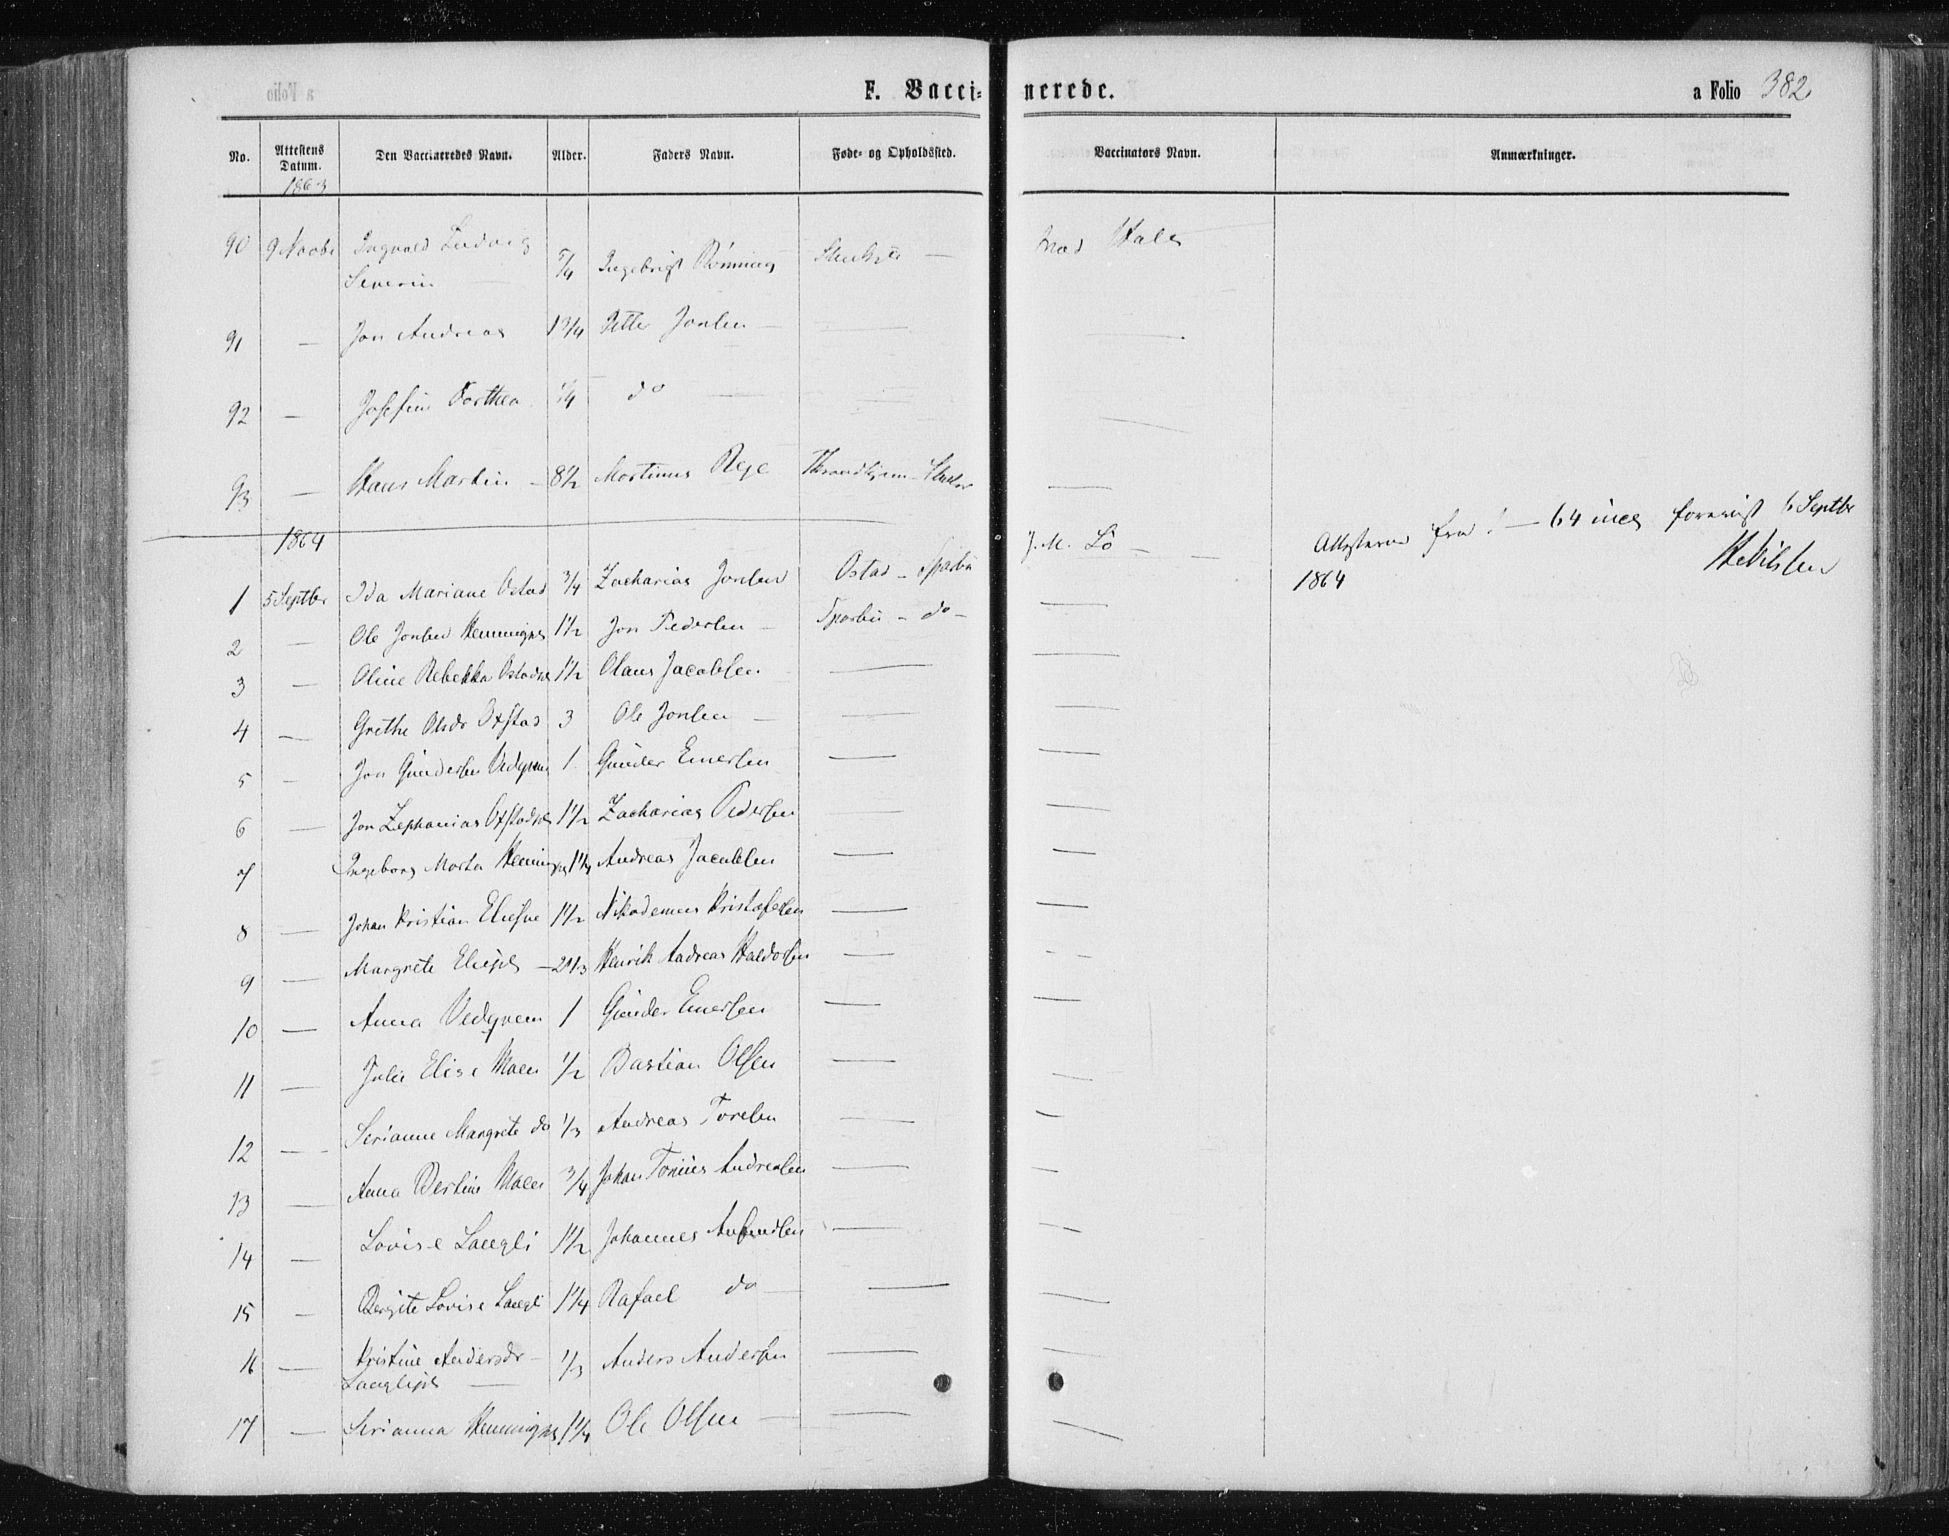 F. Vacci- nerede. a Folio 382
No. Attestens Datum. Den Vaccineredes Navn. Alder. Faders Navn. Føde- og Opholdssted. Vaccinators Navn. Anmærkninger.
1863
90 9 Novbr Ingvald Ludvig
Severin 5/4 Ingebrigt Rønning
91 — Jon Andreas 1 3/4 Petter Jonsen —
92 — Josefine Dorthea 1/4 do —
93 — Hans Martin — 8 1/2 Martinus Reje Throndhjem —
1864
1 5 Septbr Ida Mariane Ostad 3/4 Zacharias Jonsen Ostad - Sparbu J. M. Lø — Attesterne fra 1 — 64 incl forevist 6 Septbr
1864
2 — Ole Jonsen Hemmignes 1 1/2 Jon Pedersen — Sparbu - do -
3 — Oline Rebekka 1 1/2 Olaus Jacobsen —
4 — Grethe Olsdr Oxstad 3 Ole Jonsen — —
5 — Jon Gundersen Vedqvam 1 Gunder Emersen —
6 — Jon Zephanias 1 1/2 Zacharias Pedersen —
7 Ingeborg Marta 1 1/4 Andreas Jacobsen —
8 — Johan Kristian 1 1/2 Nikodemus Kristofersen —
9 — Margrete — 2 1/3 Henrik Andreas Haldorsen —
10 — Anna Vedqvam 1 Gunder Emersen —
11 — Julie Elise Maer 1/2 Bastian Olsen —
12 — Serianne Margrete do 1/3 Andreas Toresen —
13 — Anna Bertine Maer 3/4 Johan Tonius Andreasen —
14 — Lovise Langli 1 1/2 Johannes —
15 — Bergite Lovise Langli 1 1/4 Rafael do — —
16 — Kristine Andersdr —
— 1/3 Anders Andersen —
17 — Serianna 1 1/4 Ole Olsen — —